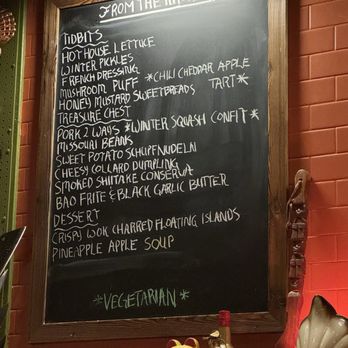 FROM THE
TIDBITS
HOT HOUSE LETTUCE
WINTER PICKLES
FRENCH DRESSING
MUSHROOM PUFF *CHILI CHEDDAR APPLE TART*
HONEY MUSTARD SWEETBREADS
TREASURE CHEST
PORK 2 WAYS *WINTER SQUASH CONFIT*
MISSOURI BEANS
SWEET POTATO SCHUPFNUDELN
CHEESY COLLARD DUMPLING
SMOKED SHIITAKE CONSERVA
BAO FRITE & BLACK GARLIC BUTTER
DESSERT
CRISPY WOK CHARRED FLOATING ISLANDS
PINEAPPLE APPLE SOUP
*VEGETARIAN*